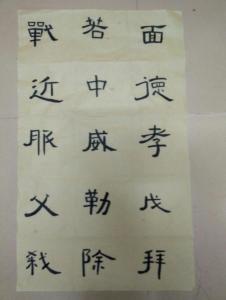 面德孝戊拜
若中威勒除
戰近服父弑